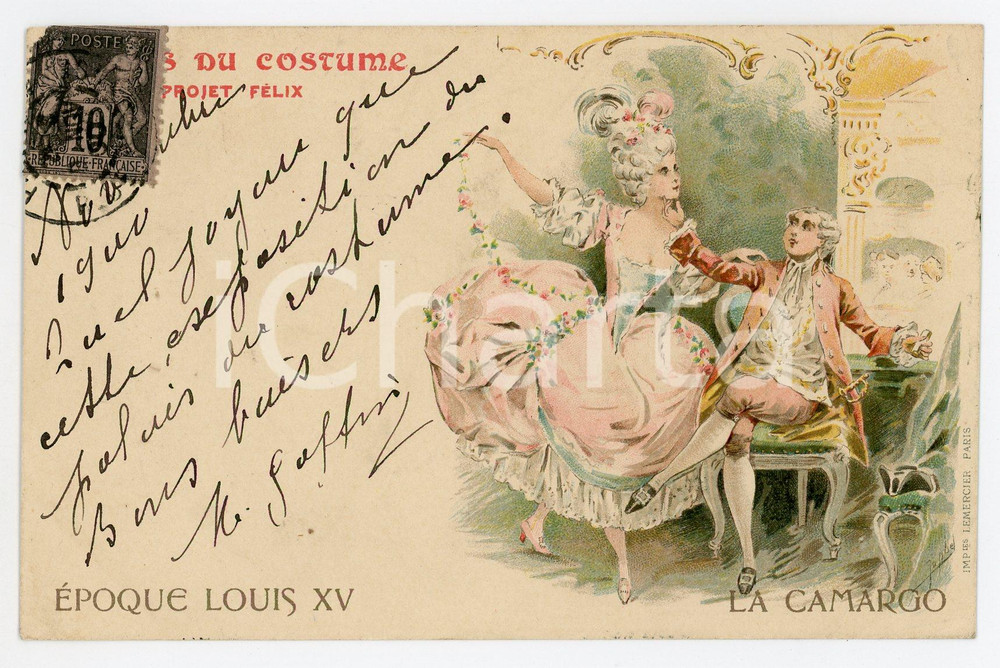 POSTE
10
REPUBLIQUE FRANÇAISE
S DU COSTUME
PROJET FÉLIX
1900
Quel joyau que
cette exposition du
palais du costume.
Bons baisers
M.
iCharta
ÉPOQUE LOUIS XV
LA CAMARGO
IMP.IES LEMERCIER PARIS